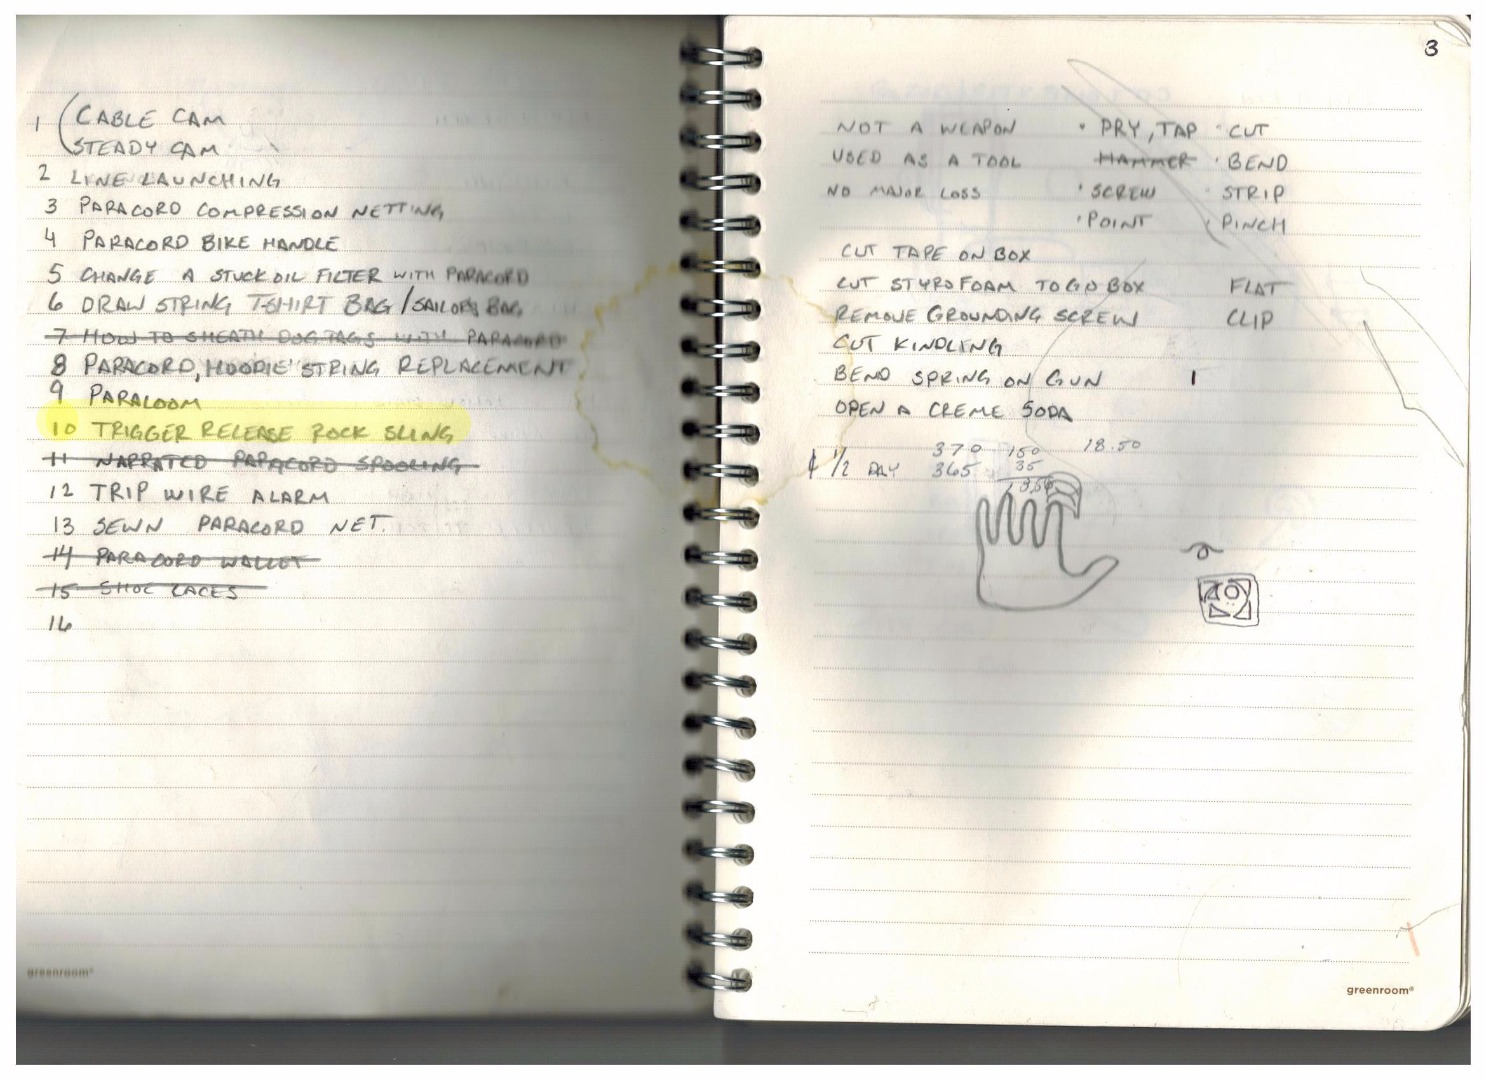 1 CABLE CAM
STEADY CAM
2 LINE LAUNCHING
3 PARACORD COMPRESSION NETTING
4 PARACORD BIKE HANDLE
5 CHANGE A STUCK OIL FILTER WITH PARACORD
6 DRAW STRING T-SHIRT BAG / SAILORS BAG
7 HOW TO SHEATH DOG TAGS WITH PARACORD
8 PARACORD, HOODIE STRING REPLACEMENT
9 PARALOOM
10 TRIGGER RELEASE ROCK SLING
11 NARRATED PARACORD SPOOLING
12 TRIP WIRE ALARM
13 SEWN PARACORD NET.
14 PARACORD WALLET
15 SHOE LACES
16
greenroom®
3
NOT A WEAPON • PRY, TAP • CUT
USED AS A TOOL HAMMER • BEND
NO MAJOR LOSS • SCREW • STRIP
• POINT • PINCH
CUT TAPE ON BOX
CUT STYROFOAM TO GO BOX FLAT
REMOVE GROUNDING SCREW CLIP
CUT KINDLING
BEND SPRING ON GUN 1
OPEN A CREME SODA
370 150 18.50
1/2 DAY 365 35
greenroom®